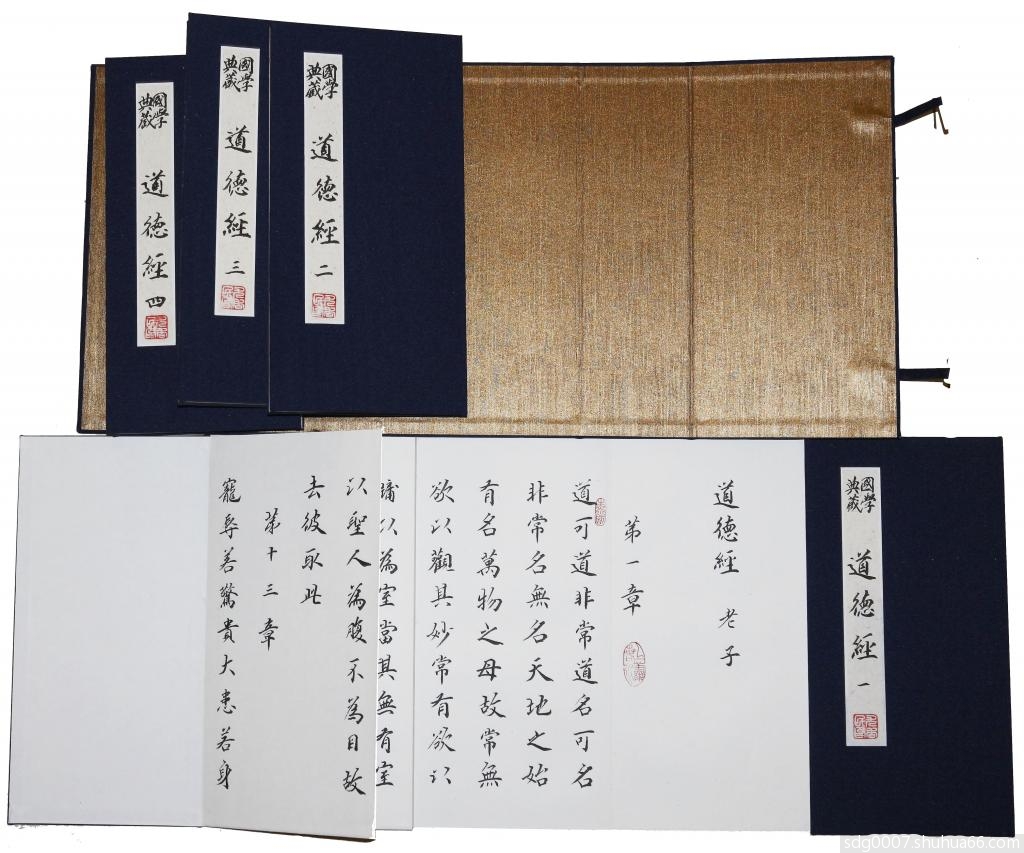 國學典藏 道德經 二
國學典藏 道德經 三
國學典藏 道德經 四
國學典藏 道德經 一
道德經 老子
第一章
道可道非常道名可名
非常名無名天地之始
有名萬物之母故常無
欲以觀其妙常有欲以
牖以為室當其無有室
以聖人為腹不為目故
去彼取此
第十三章
寵辱若驚貴大患若身
sdg0007.shuhua66.com